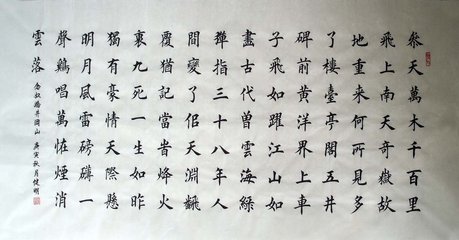 叅天萬木千百里
飛上南天奇嶽故
地重來何所見多
了樓臺亭閣五井
碑前黃洋界上車
子飛如躍江山如
畫古代曾雲海綠
彈指三十八年人
間變了佀天淵翻
覆猶記當旹烽火
裏九死一生如昨
獨有豪情天際懸
明月風雷磅礴一
聲鷄唱萬恠煙消
雲落
念奴嬌井岡山 庚寅秋月健明